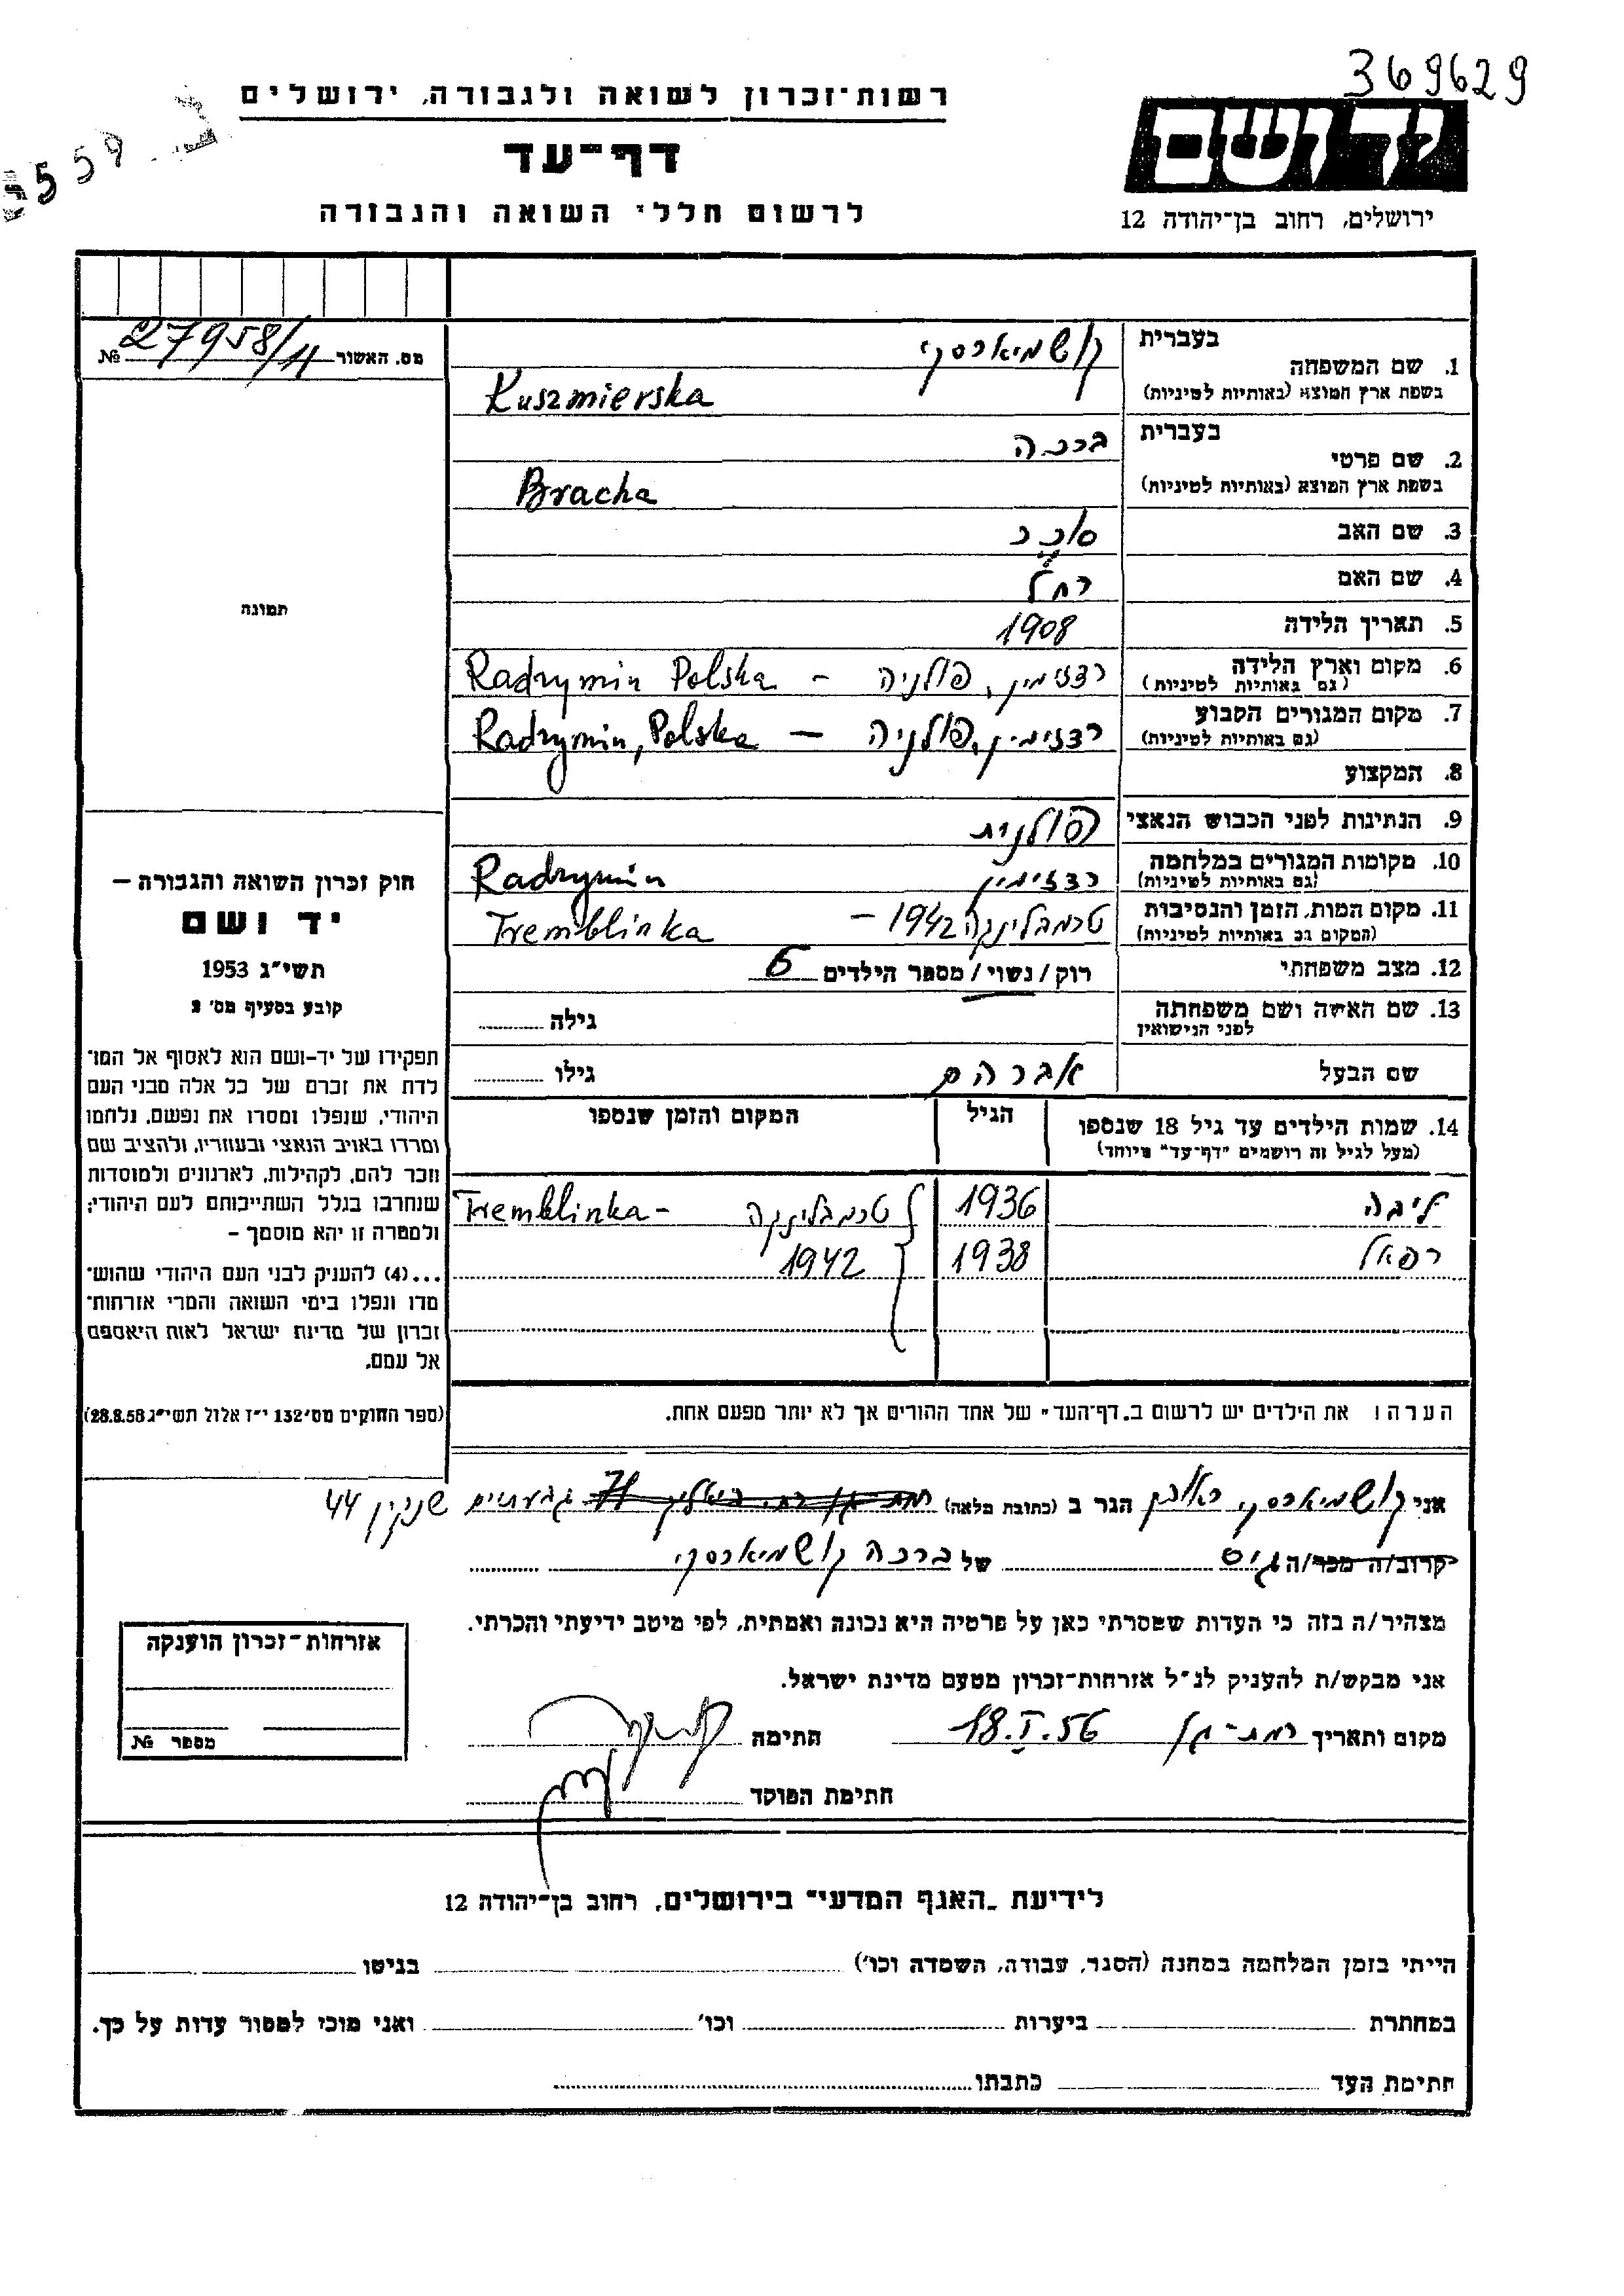 369629
רשות־זכרון לשואה ולגבורה, ירושלים
יד ושם
דף־עד
559
לרשום חללי השואה והגבורה
ירושלים, רחוב בן־יהודה 12
מס. האשור 27958/11 №
בעברית
1. שם המשפחה קושמיארסקי
בשפת ארץ המוצא (באותיות לטיניות) Kuszmierska
בעברית
2. שם פרטי ברכה
בשפת ארץ המוצא (באותיות לטיניות) Bracha
3. שם האב
4. שם האם רחל
5. תאריך הלידה 1908
6. מקום וארץ הלידה רדזימין, פולניה – Radzymin Polska
(גם באותיות לטיניות)
7. מקום המגורים הקבוע רדזימין, פולניה – Radzymin, Polska
(גם באותיות לטיניות)
8. המקצוע
9. הנתינות לפני הכבוש הנאצי פולנית
10. מקומות המגורים במלחמה רדזימין Radzymin
(גם באותיות לטיניות)
11. מקום המות, הזמן והנסיבות טרמבלינקה 1942 – Tremblinka
(המקום גם באותיות לטיניות)
12. מצב משפחתי רוק / נשוי / מספר הילדים 5
13. שם האשה ושם משפחתה גילה
לפני הנישואין
שם הבעל אברהם גילו
תמונה
חוק זכרון השואה והגבורה –
יד ושם
תשי״ג 1953
קובע בסעיף מס׳ 2
תפקידו של יד-ושם הוא לאסוף אל המו־
לדת את זכרם של כל אלה מבני העם
היהודי, שנפלו ומסרו את נפשם, נלחמו
ומרדו באויב הנאצי ובעוזריו, ולהציב שם
וזכר להם, לקהילות, לארגונים ולמוסדות
שנחרבו בגלל השתייכותם לעם היהודי;
ולמטרה זו יהא מוסמך –
...(4) להעניק לבני העם היהודי שהוש־
מדו ונפלו בימי השואה והמרי אזרחות־
זכרון של מדינת ישראל לאות היאספם
אל עמם.
(ספר החוקים מס׳ 132 י״ז אלול תשי״ג 28.8.53)
14. שמות הילדים עד גיל 18 שנספו הגיל המקום והזמן שנספו
(מעל לגיל זה רושמים ״דף-עד״ מיוחד)
ליבה 1936 טרמבלינקה Tremblinka –
רפאל 1938 1942
הערה: את הילדים יש לרשום ב״דף-העד״ של אחד ההורים אך לא יותר מפעם אחת.
אני קושמיארסקי ראובן הגר ב (כתובת מלאה) גבעתיים שנקין 44
קרוב/ה מכר/ה גיס של ברכה קושמיארסקי
מצהיר/ה בזה כי העדות שמסרתי כאן על פרטיה היא נכונה ואמתית, לפי מיטב ידיעתי והכרתי.
אני מבקש/ת להעניק לנ״ל אזרחות-זכרון מטעם מדינת ישראל.
מקום ותאריך רמת-גן 18.I.56 חתימה
חתימת הפוקד
אזרחות-זכרון הוענקה
מספר №
לידיעת ״האגף המדעי״ בירושלים, רחוב בן-יהודה 12
הייתי בזמן המלחמה במחנה (הסגר, עבודה, השמדה וכו׳) בגיטו
במחתרת ביערות וכו׳ ואני מוכן למסור עדות על כך.
חתימת העד כתבתו